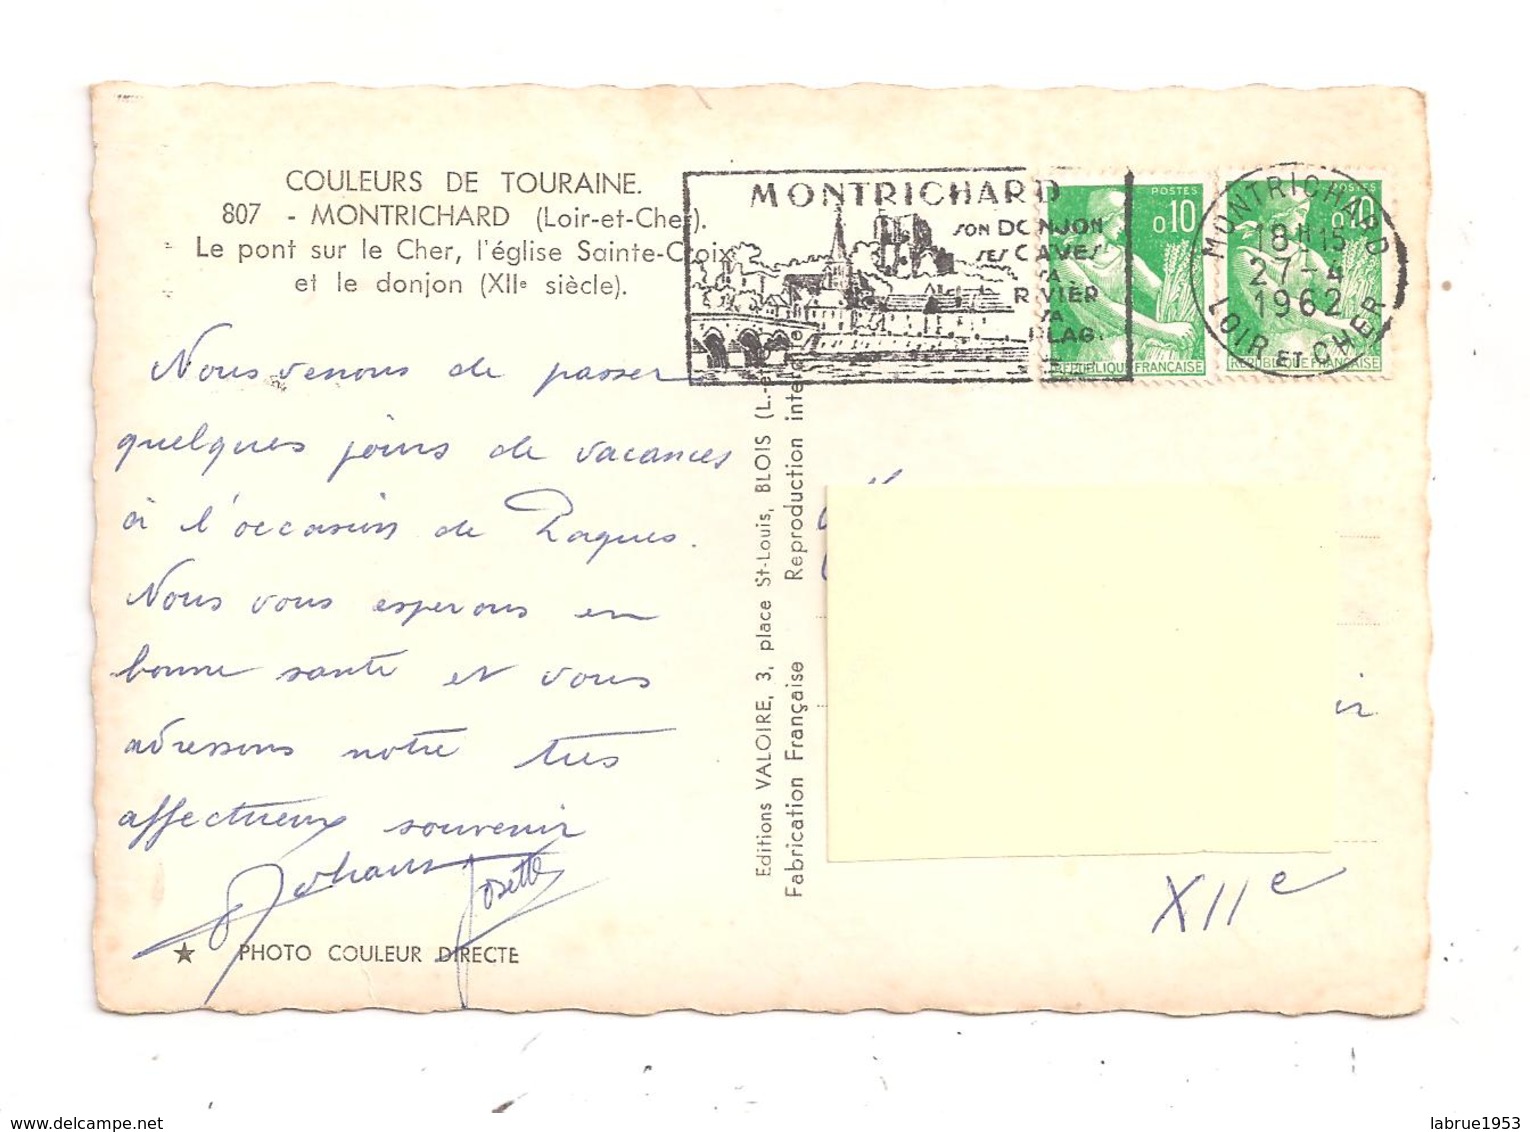 COULEURS DE TOURAINE.
807 - MONTRICHARD (Loir-et-Cher).
Le pont sur le Cher, l'église Sainte-Croix
et le donjon (XIIe siècle).
MONTRICHARD
SON DONJON
SES CAVES
SA
RIVIÈR
SA
PLAG
POSTES
0,10
RÉPUBLIQUE FRANÇAISE
POSTES
0,10
RÉPUBLIQUE FRANÇAISE
MONTRICHARD
18H15
27-4
1962
LOIR ET CHER
Nous venons de passer
quelques jours de vacances
à l'occasion de Paques.
Nous vous esperons en
bonne santé et vous
adressons notre très
affectueux souvenir
Josette
★ PHOTO COULEUR DIRECTE
Editions VALOIRE, 3, place St-Louis, BLOIS (L.-et
Fabrication Française Reproduction inter
ir
XIIe
delcampe.net
labrue1953